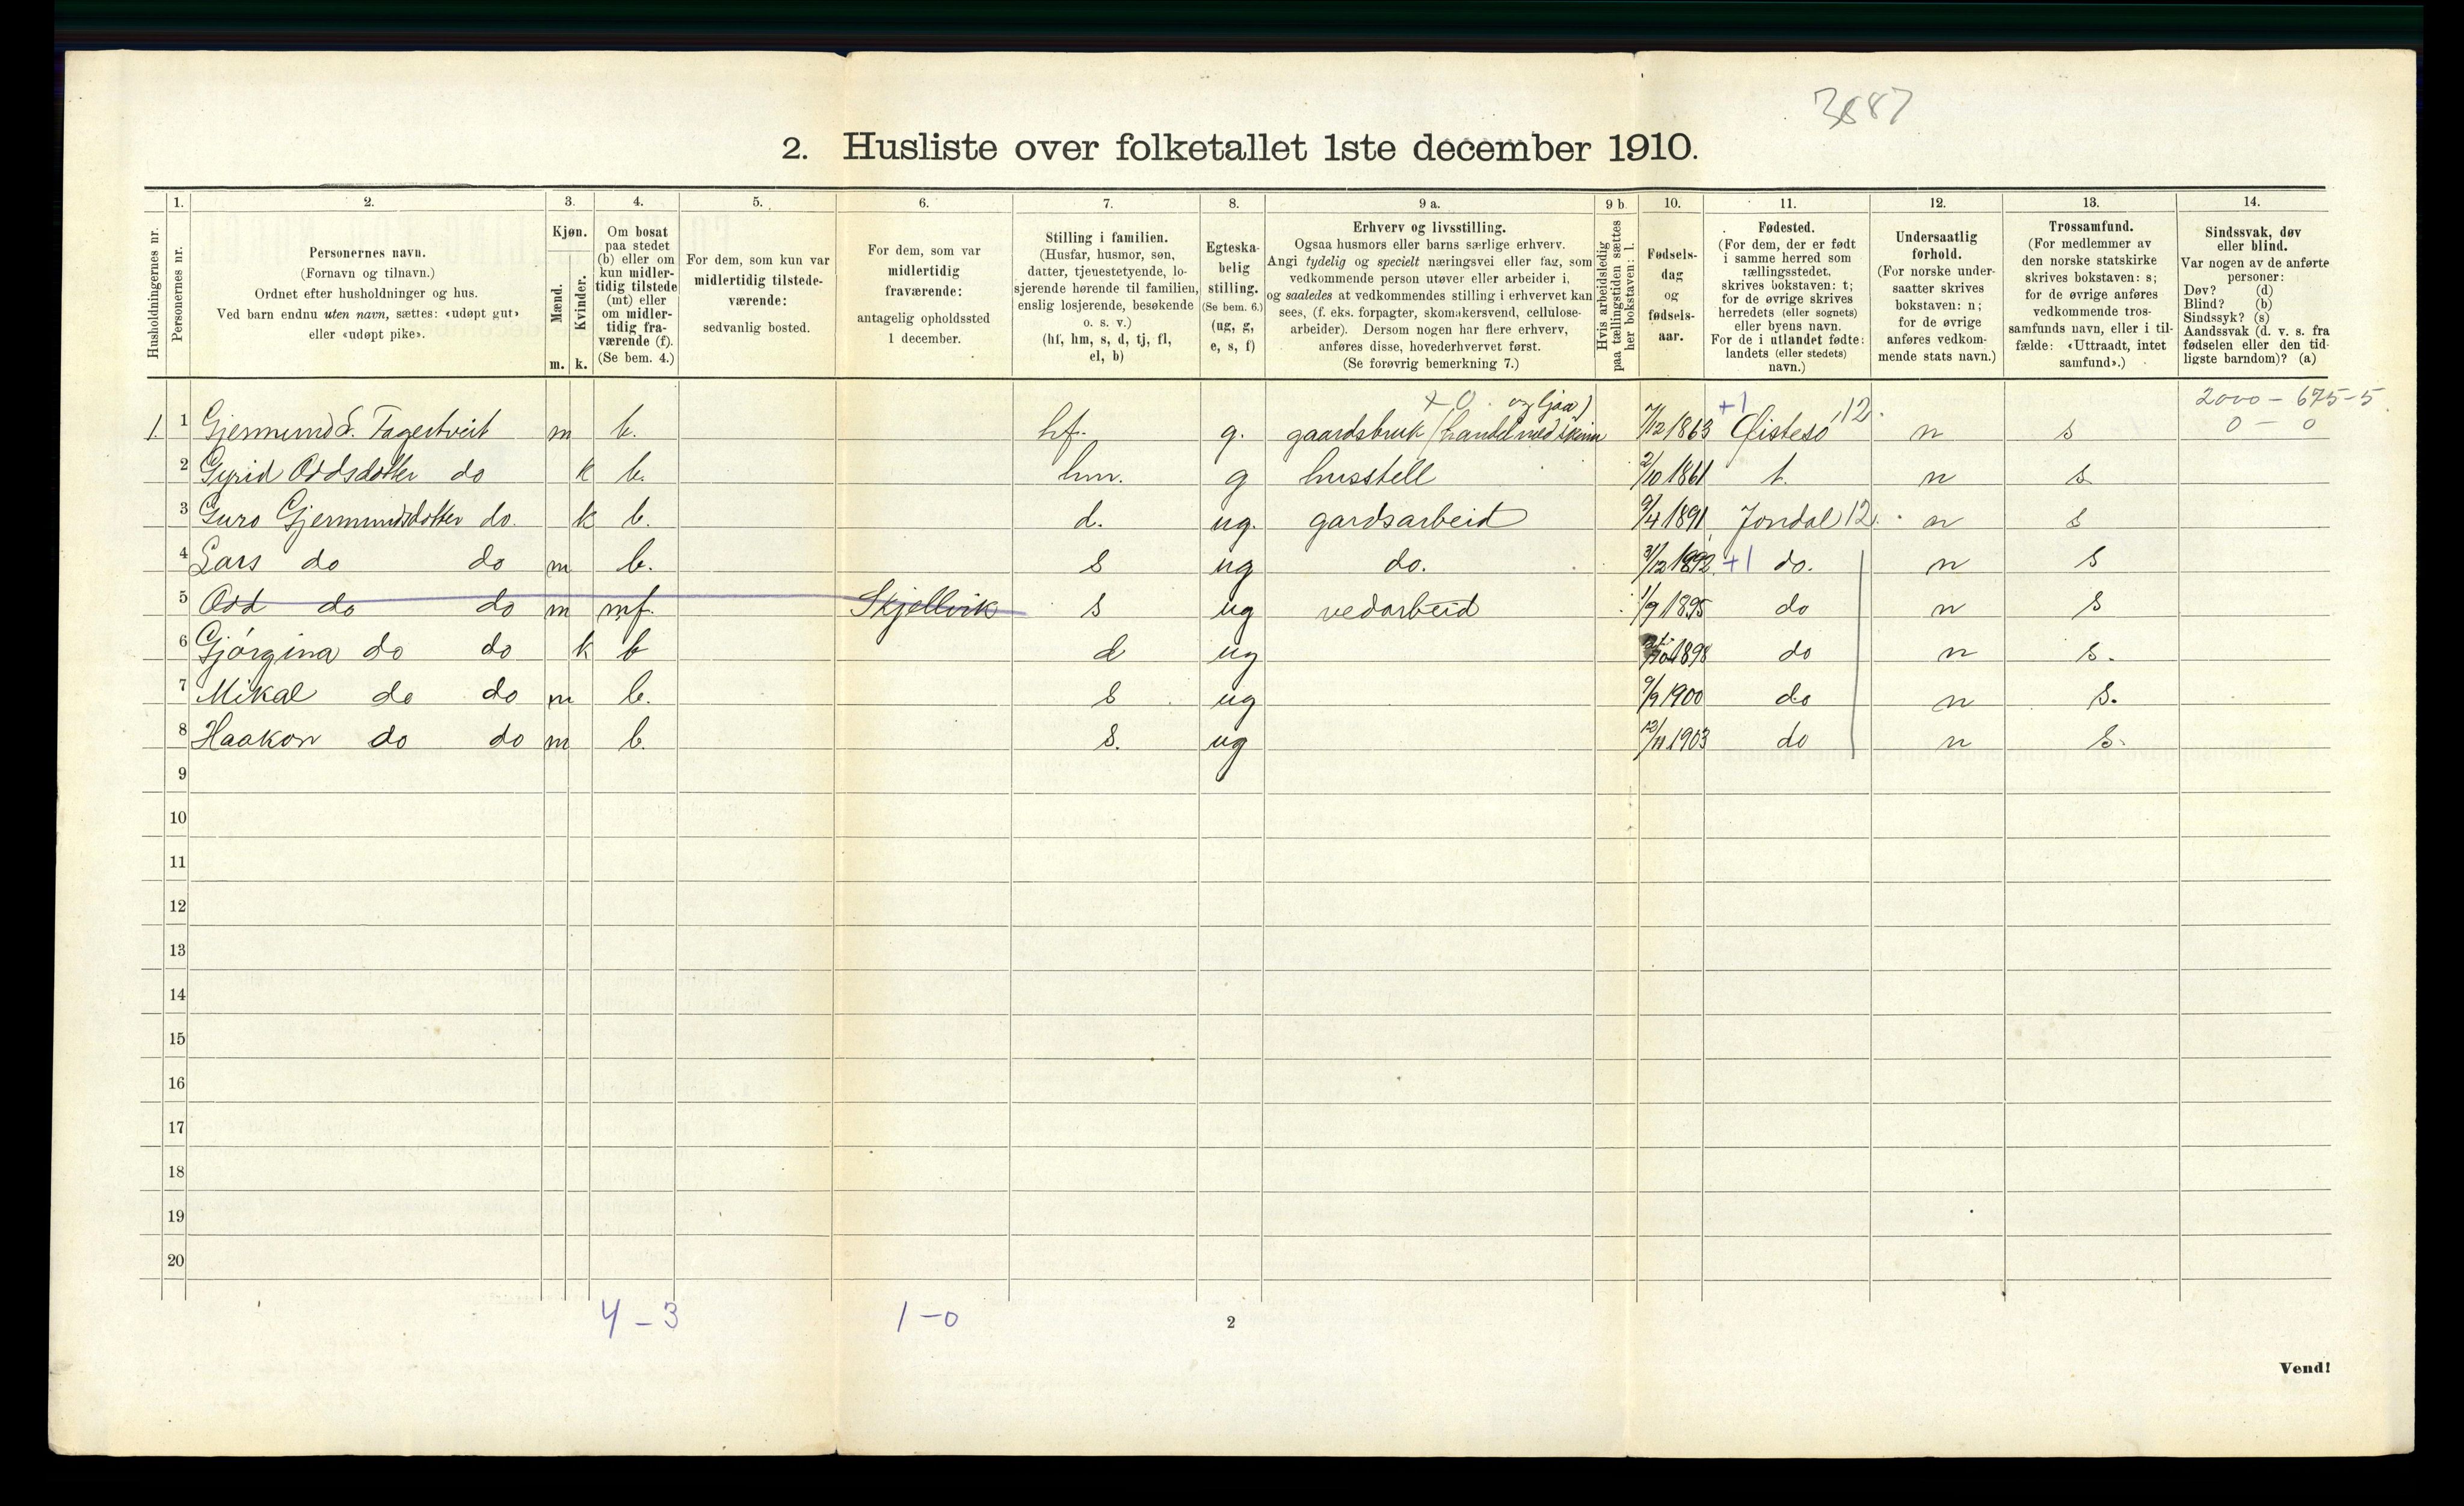 3887
2. Husliste over folketallet 1ste december 1910.
Husholdningernes nr.
1.
Personernes nr.
2.
Personernes navn.
(Fornavn og tilnavn.)
Ordnet efter husholdninger og hus.
Ved barn endnu uten navn, sættes: «udøpt gut»
eller «udøpt pike».
3.
Kjøn.
Mænd.
Kvinder.
m. k.
4.
Om bosat
paa stedet
(b) eller om
kun midler-
tidig tilstede
(mt) eller
om midler-
tidig fra-
værende (f).
(Se bem. 4.)
5.
For dem, som kun var
midlertidig tilstede-
værende:
sedvanlig bosted.
6.
For dem, som var
midlertidig
fraværende:
antagelig opholdssted
1 december.
7.
Stilling i familien.
(Husfar, husmor, søn,
datter, tjenestetyende, lo-
sjerende hørende til familien,
enslig losjerende, besøkende
o. s. v.)
(hf, hm, s, d, tj, fl,
el, b)
8.
Egteska-
belig
stilling.
(Se bem. 6.)
(ug, g,
e, s, f)
9 a.
Erhverv og livsstilling.
Ogsaa husmors eller barns særlige erhverv.
Angi tydelig og specielt næringsvei eller fag, som
vedkommende person utøver eller arbeider i,
og saaledes at vedkommendes stilling i erhvervet kan
sees, (f. eks. forpagter, skomakersvend, cellulose-
arbeider). Dersom nogen har flere erhverv,
anføres disse, hovederhvervet først.
(Se forøvrig bemerkning 7.)
9 b.
Hvis arbeidsledig
paa tællingstiden sættes
her bokstaven: l.
10.
Fødsels-
dag
og
fødsels-
aar.
11.
Fødested.
(For dem, der er født
i samme herred som
tællingsstedet,
skrives bokstaven: t;
for de øvrige skrives
herredets (eller sognets)
eller byens navn.
For de i utlandet fødte:
landets (eller stedets)
navn.)
12.
Undersaatlig
forhold.
(For norske under-
saatter skrives
bokstaven: n;
for de øvrige
anføres vedkom-
mende stats navn.)
13.
Trossamfund.
(For medlemmer av
den norske statskirke
skrives bokstaven: s;
for de øvrige anføres
vedkommende tros-
samfunds navn, eller i til-
fælde: «Uttraadt, intet
samfund».)
14.
Sindssvak, døv
eller blind.
Var nogen av de anførte
personer:
Døv? (d)
Blind? (b)
Sindssyk? (s)
Aandssvak (d. v. s. fra
fødselen eller den tid-
ligste barndom)? (a)
x 0 . og ljaa) +1 12. 2000 – 675-5
1. 1 Gjermund S. Fagertveit m b. hf. g. gaardsbruk (handel med skinn 7/12 1863 Øistesø n s 0 – 0
2 Gyrid Oddsdotter do k b. hm. g husstell 2/10 1861 t. n s
3 Guro Gjermundsdotter do. k b. d. ug. gardsarbeid 9/4 1891 Jondal 12. n s
4 Lars do do m b. s ug do. 31/12 1892. +1 do. n s
5 Odd do do m mf. Skjellvik s ug vedarbeid 1/9 1895 do n s
6 Gjørgina do do k b d ug 1898 do n s.
7 Mikal do do m b. s ug 9/9 1900 do n s.
8 Haakon do do m b. s. ug 12/11 1903 do n s.
9
10
11
12
13
14
15
16
17
18
19
20
4 – 3 1 – 0
2
Vend!